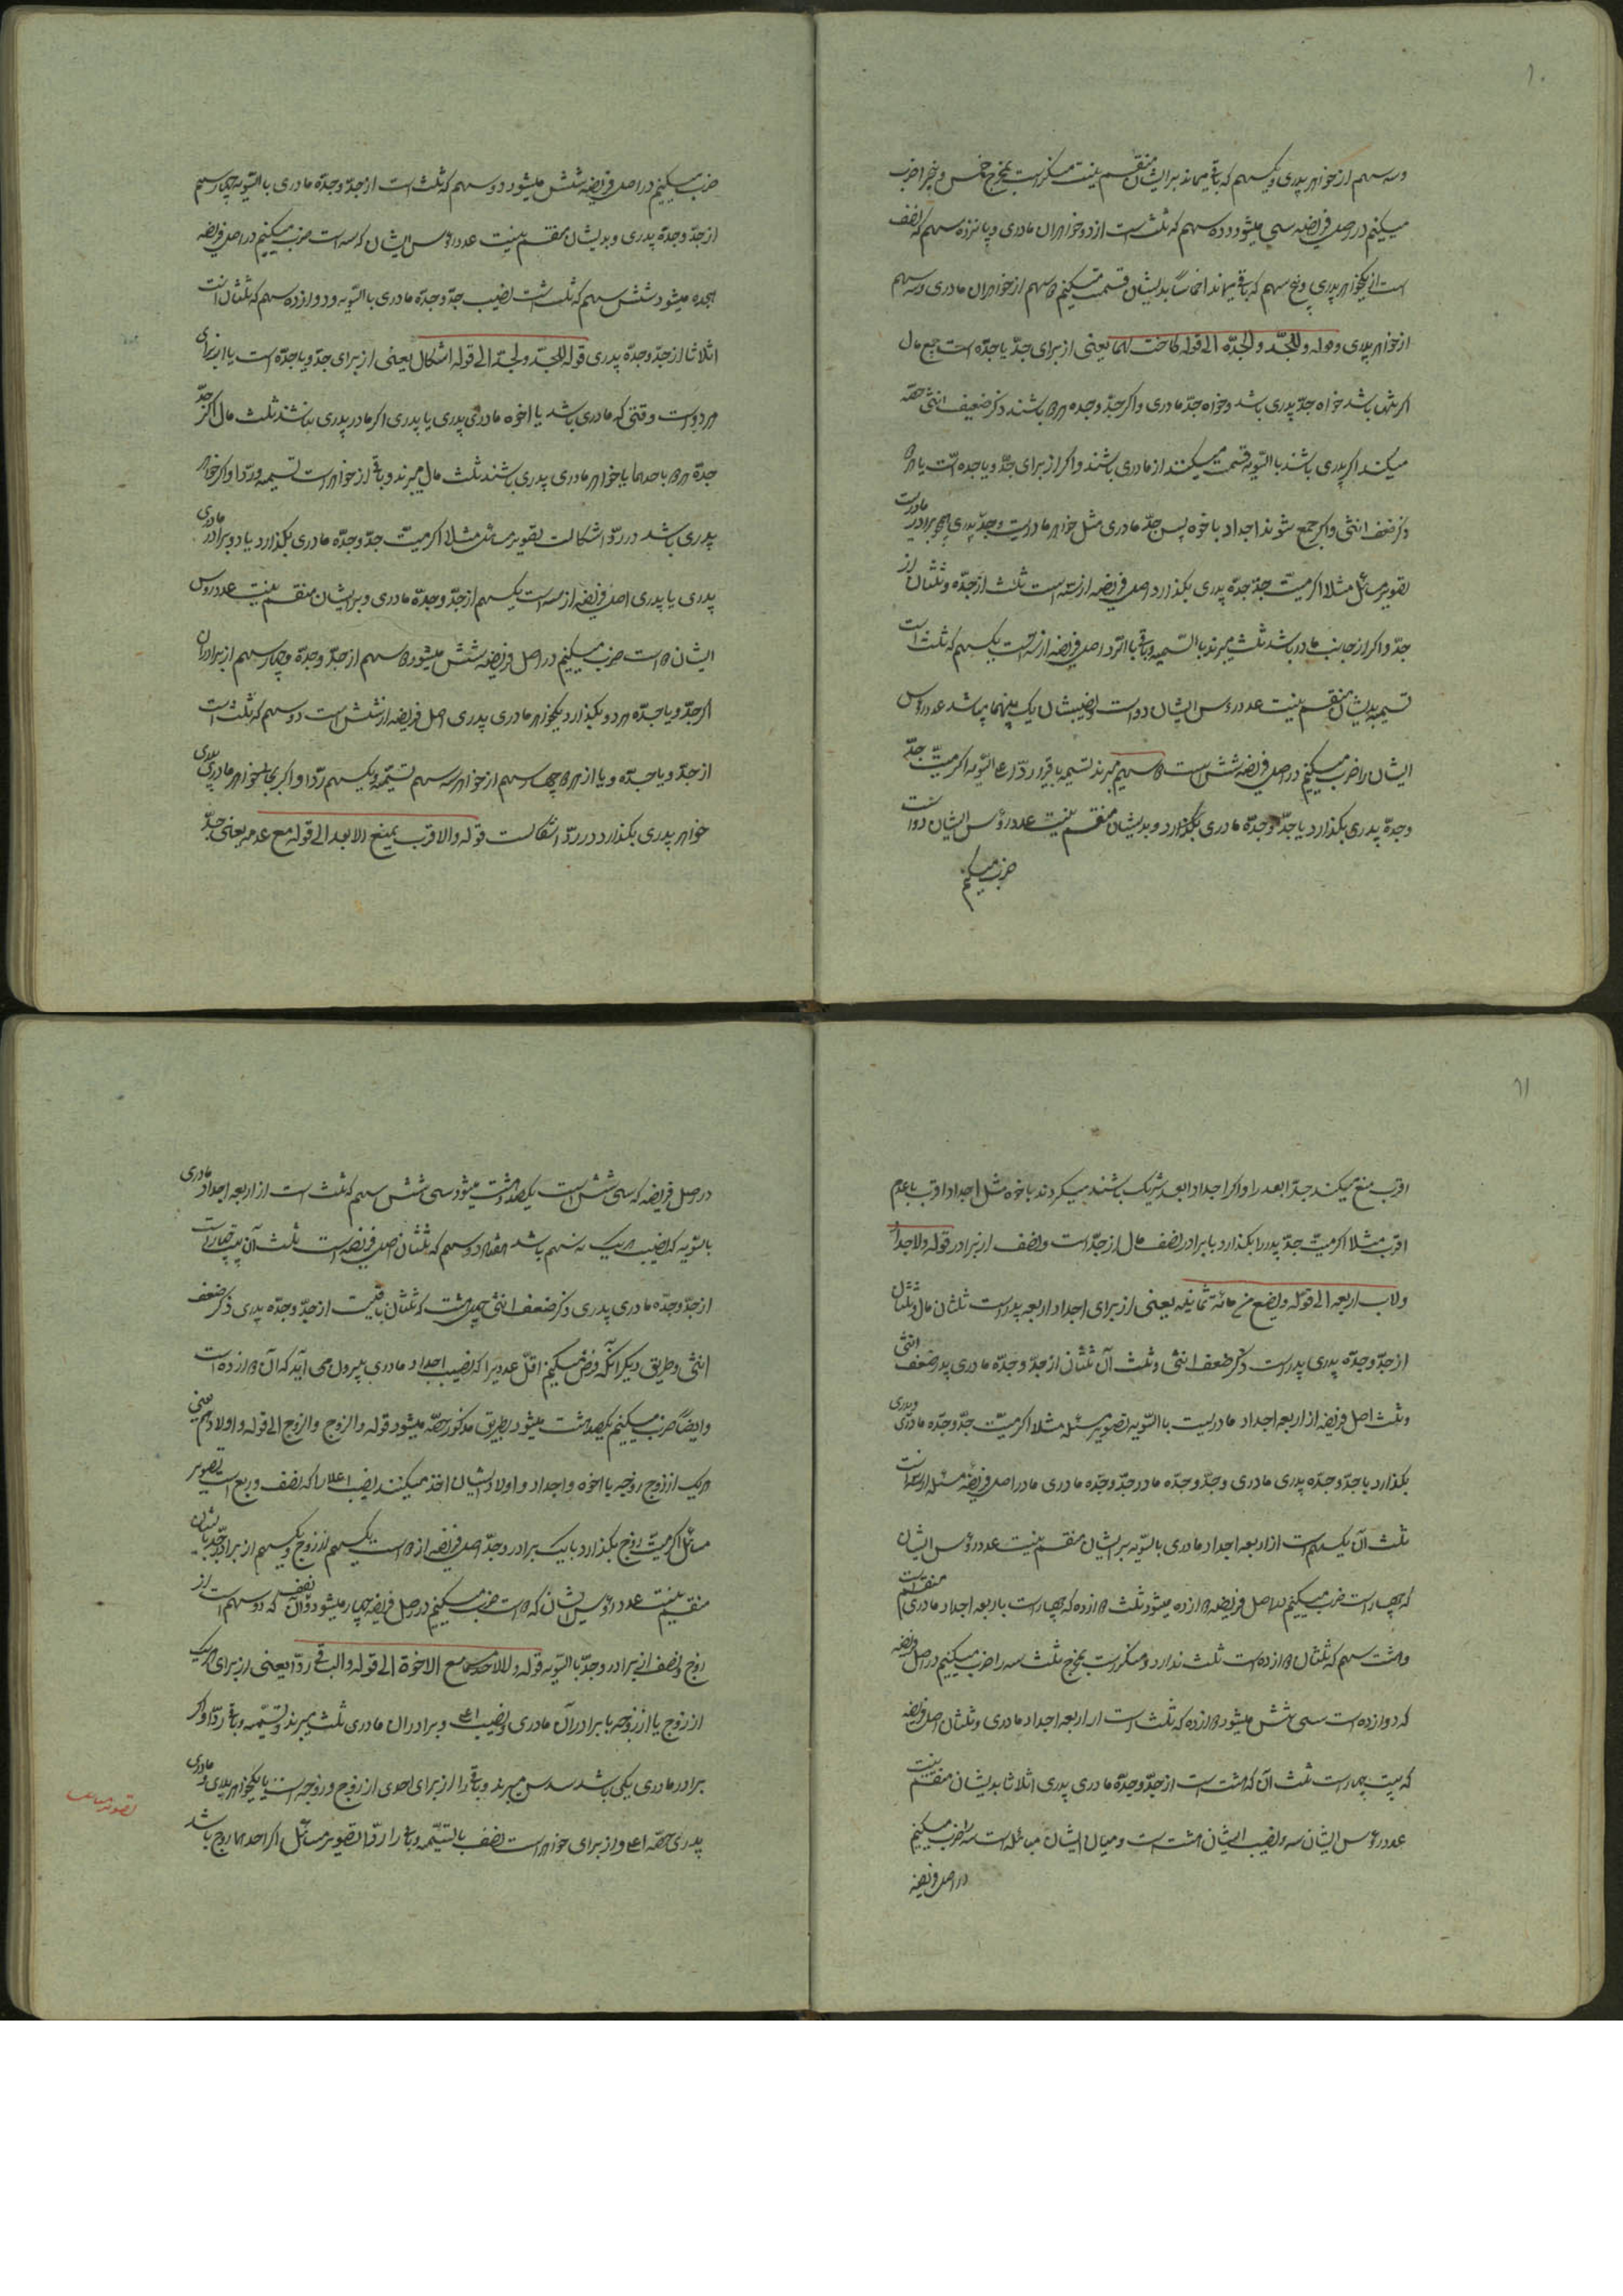 ۱۰
وسه سهم از خواهر پدری ویکسهم که باقی میماند بر ایشان منقسم نیست منکر است بمخرج خمس و پنج را ضرب
میکنیم در اصل فریضه سی میشود ده سهم که ثلث است از دو خواهران مادری و پانزده سهم که نصف
است از یکخواهر پدری و پنج سهم که باقی میماند اخماساً بدیشان قسمت میکنیم ۲ سهم از خواهران مادری و سه سهم
از خواهر پدری وقوله وللجدّ والجدّة الی قوله کاخت لهما یعنی از برای جدّ یا جدّه است جمع مال
اگر تنها باشد خواه جدّ پدری باشد و خواه جدّ مادری و اگر جدّ وجده ۲ باشند ذکر ضعف انثی حصّه
میکنند اگر پدری باشند بالسّویه قسمت میکنند از مادری باشند و اگر از برای جدّ و یا جده است یا
ذکر ضعف انثی و اگر جمع شوند اجداد با اخوه پس جدّ مادری مثل خواهر مادریست و جدّ پدری همچو برادر مادریست
تصویر مسائل مثلا اگر میّت جدّ جدّه پدری بگذارد اصل فریضه از سه است ثلث از جدّه و ثلثان از
جدّ و اگر از جانب مادر باشد ثلث میبرند بالتسمیه و باقی بالرّد اصل فریضه از سه است یکسهم که ثلث است
تسمیه بدیشان منقسم نیست عدد رؤس ایشان دو است و نصیبشان یک بینهما تباین باشد عدد رؤس
ایشان را ضرب میکنیم در اصل فریضه شش است ۲ سهم میبرند تسمیه باقی را ردّا علی السّویه اگر میّت جدّ
وجدّه پدری بگذارد یا جدّ وجدّه مادری بگذارد و بدیشان منقسم نیست عدد رؤس ایشان دو است
ضرب میکنیم
ضرب میکنیم در اصل فریضه شش میشود دو سهم که ثلث است از جدّ وجدّه مادری بالسّویه چهار سهم
از جدّ وجدّه پدری و بدیشان منقسم نیست عدد رؤس ایشان که سه است ضرب میکنیم در اصل فریضه
هجده میشود شش سهم که ثلث است نصیب جدّ وجدّه مادری بالسّویه و دوازده سهم که ثلثان است
اثلاثا از جدّ وجدّه پدری قوله للجدّ ولجدّ الی قوله اشکال یعنی از برای جدّ و یا جدّه است یا از برای
هر دو است وقتی که مادری باشد یا اخوه مادری پدری یا پدری اگر مادر پدری نباشند ثلث مال اگر جدّ
جدّه ۲ با احدهما یا خواهر مادری پدری باشند ثلث مال میبرند و باقی از خواهر است تسمیه و ردّا و اگر خواهر
پدری باشد در ردّ اشکالست تصویر مسائل مثلا اگر میّت جدّ وجدّه مادری بگذارد یا دو برادر مادری
پدری یا پدری اصل فریضه از سه است یکسهم از جدّ وجدّه مادری و بر ایشان منقسم نیست عدد رؤس
ایشان ۲ است ضرب میکنیم در اصل فریضه شش میشود ۲ سهم از جدّ وجدّه و چهار سهم از برادران
اگر جدّ و یا جدّه هر دو بگذارد یکخواهر مادری پدری اصل فریضه از شش است دو سهم که ثلث است
از جدّ و یا جدّه و یا از ۲ چهار سهم از خواهر سه سهم تسمیّه و یکسهم ردّا و اگر بجای خواهر مادری پدری
خواهر پدری بگذارد در ردّ اشکالست قوله والاقرب یمنع الابعد الی قوله مع عدمه یعنی جدّ
۱۱
اقرب منع میکند جدّ ابعد را و اگر اجداد ابعد شریک باشند میگردند با اخوه مثل اجداد اقرب با عدم
اقرب مثلا اگر میّت جدّ پدر را بگذارد با برادر نصف مال از جدّ است و نصف از برادر قوله ولاجداد
ولاب اربعه الی قوله ویصح من مائة ثمانیه یعنی از برای اجداد اربعه پدر است ثلثان مال و ثلثان
از جدّ وجدّه پدری پدر است ذکر ضعف انثی و ثلث آن ثلثان از جدّ وجدّه مادری پدر ضعف انثی
و ثلث اصل فریضه از اربعه اجداد مادریست بالسّویه تصویر مسئله مثلا اگر میّت جدّ وجدّه مادری پدری
بگذارد با جدّ وجدّه پدری مادری وجدّ وجدّه مادر جدّ وجدّه مادری مادر اصل فریضه مسئله از سه است
ثلث آن یکسهم است از اربعه اجداد مادری بالسّویه بر ایشان منقسم نیست عدد رؤس ایشان
که چهار است ضرب میکنیم در اصل فریضه ۲ ازده میشود ثلث ۲ ازده که چهار است با اربعه اجداد مادری منقسم است
و هشت سهم که ثلثان ۲ ازده است ثلث ندارد و منکر است بمخرج ثلث سه را ضرب میکنیم در اصل فریضه
که دوازده است سی شش میشود ۲ ازده که ثلث است از اربعه اجداد مادری و ثلثان اصل فریضه
که بیست چهار است ثلث آن که هشت است از جدّ وجدّه مادری پدری اثلاثا بدیشان منقسم نیست
عدد رؤس ایشان سه و نصیب ایشان هشت است و میان ایشان مباینه است سه را ضرب میکنیم
در اصل فریضه
در اصل فریضه که سی شش است یکصد هشت میشود سی شش سهم که ثلث است از اربعه اجداد مادری
بالسّویه که نصیب هر یک نه سهم باشد هفتاد دو سهم که ثلثان اصل فریضه است ثلث آن بیست چهار است
از جدّ وجدّه مادری پدری ذکر ضعف انثی چهل هشت که ثلثان باقیست از جدّ وجدّه پدری ذکر ضعف
انثی و طریق دیگر آنکه فرض میکنیم اقلّ عددیرا که نصیب اجداد مادری بیرون می آید که آن ۲ ازده است
و ایضاً ضرب میکنیم یکصد هشت میشود بطریق مذکور حصّه میشود قوله والزوج والزوج الی قوله واولادهم یعنی
هر یک از زوج زوجه با اخوه و اجداد و اولاد ایشان اخذ میکنند نصیب اعلا را که نصف و ربع است تصویر
مسائل اگر میّت زوج بگذارد با یک برادر وجدّ اصل فریضه از ۲ است یکسهم از زوج و یکسهم از برادر وجدّ بایشان
منقسم نیست عدد رؤس ایشان که ۲ است ضرب میکنیم در اصل فریضه چهار میشود نصف آن که دو سهم است از
زوج و نصف از برادر وجدّ بالسّویه قوله ولاحدهما مع الاخوة الی قوله والباقی ردّا یعنی از برای هر یک
از زوج یا از زوجه با برادران مادری نصیب اعلی و برادران مادری ثلث میبرند و تسمیّه و باقی ردّا و اگر
برادر مادری یکی باشد سدس میبرند و باقی را از برای احدی از زوج و زوجه است با یکخواهر پدری و مادری
پدری حصّه اعلی و از برای خواهر است نصف بالتسمّیه و باقی را ردّا تصویر مسائل اگر احدهما زوج باشد
تصویر مسائل